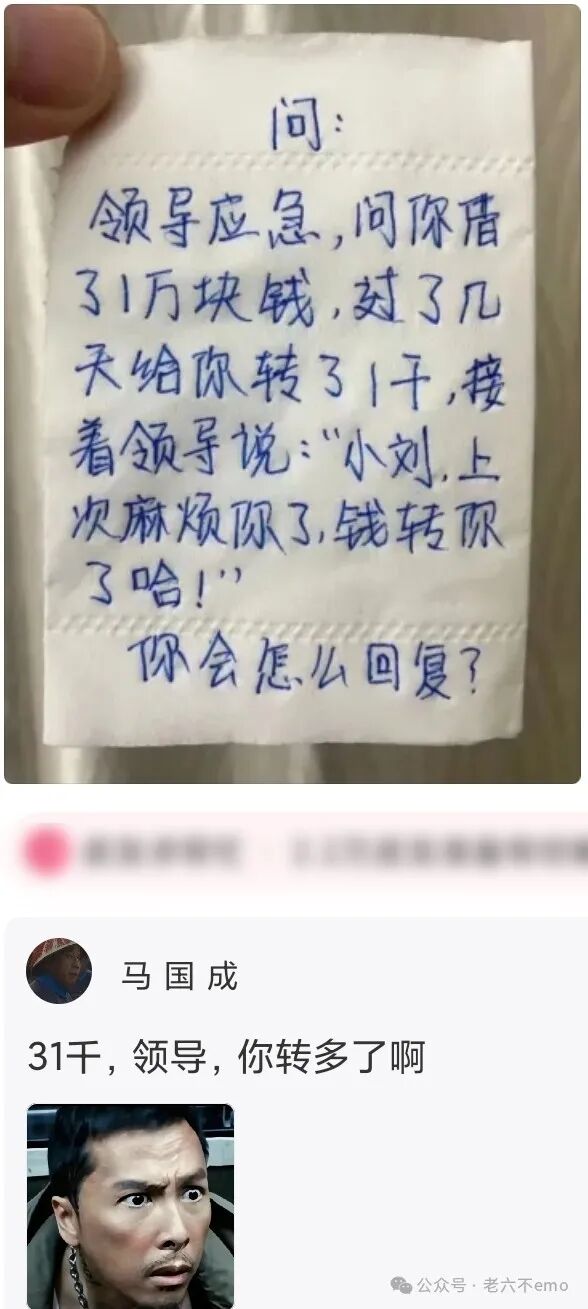 问：
领导应急，问你借
了1万块钱，过了几
天给你转了1千，接
着领导说：“小刘，上
次麻烦你了，钱转你
了哈！”
你会怎么回复？
马国成
31千，领导，你转多了啊
公众号·老六不emo